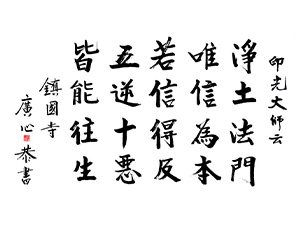 印光大師云
淨土法門
唯信為本
若信得及
五逆十惡
皆能往生
鎮國寺
廣心恭書